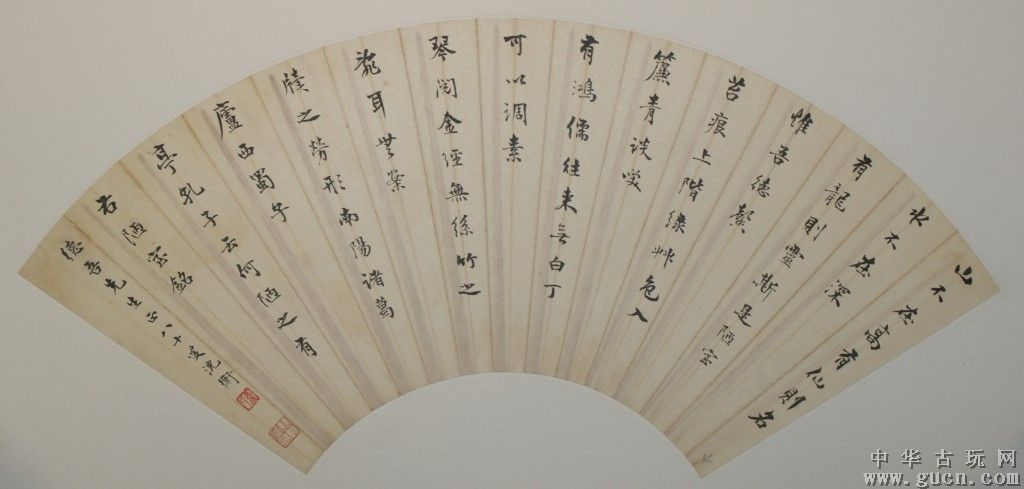 山不在高有仙則名
水不在深
有龍則靈斯是陋室
惟吾德馨
苔痕上階綠艸色入
簾青談咲
有鴻儒往来无白丁
可以調素
琴閱金經無絲竹之
亂耳無案
牘之勞形南陽諸葛
廬西蜀子
亭孔子云何陋之有
右陋室銘
德吾先生正八十叟沈衛
中华古玩网
www.gucn.com